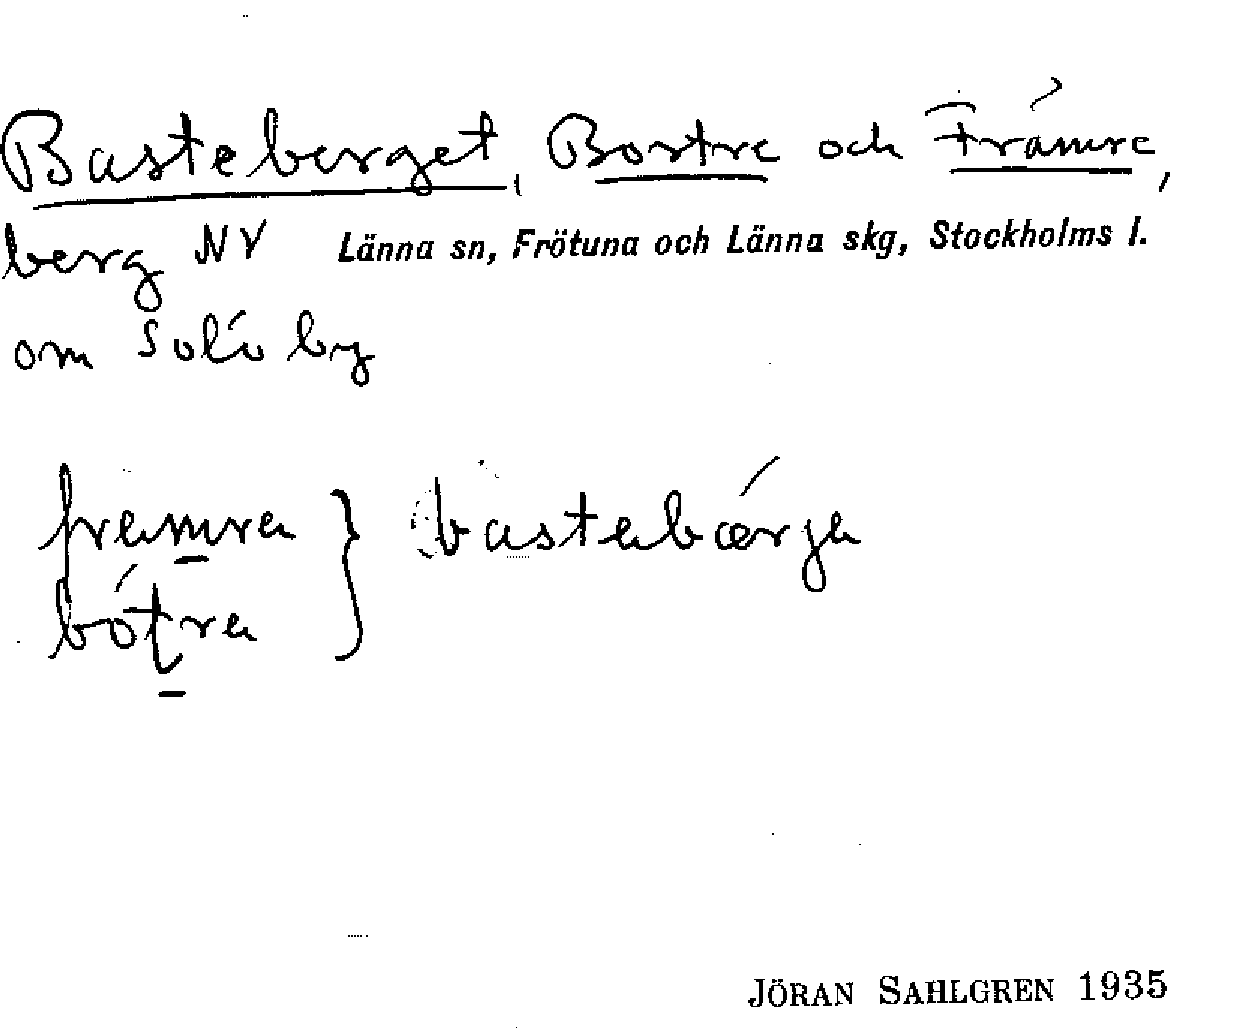 Basteberget, Bortre och Främre,
berg NV Länna sn, Frötuna och Länna skg, Stockholms l.
om Solö by
framra } bastabærja
bótra
JÖRAN SAHLGREN 1935